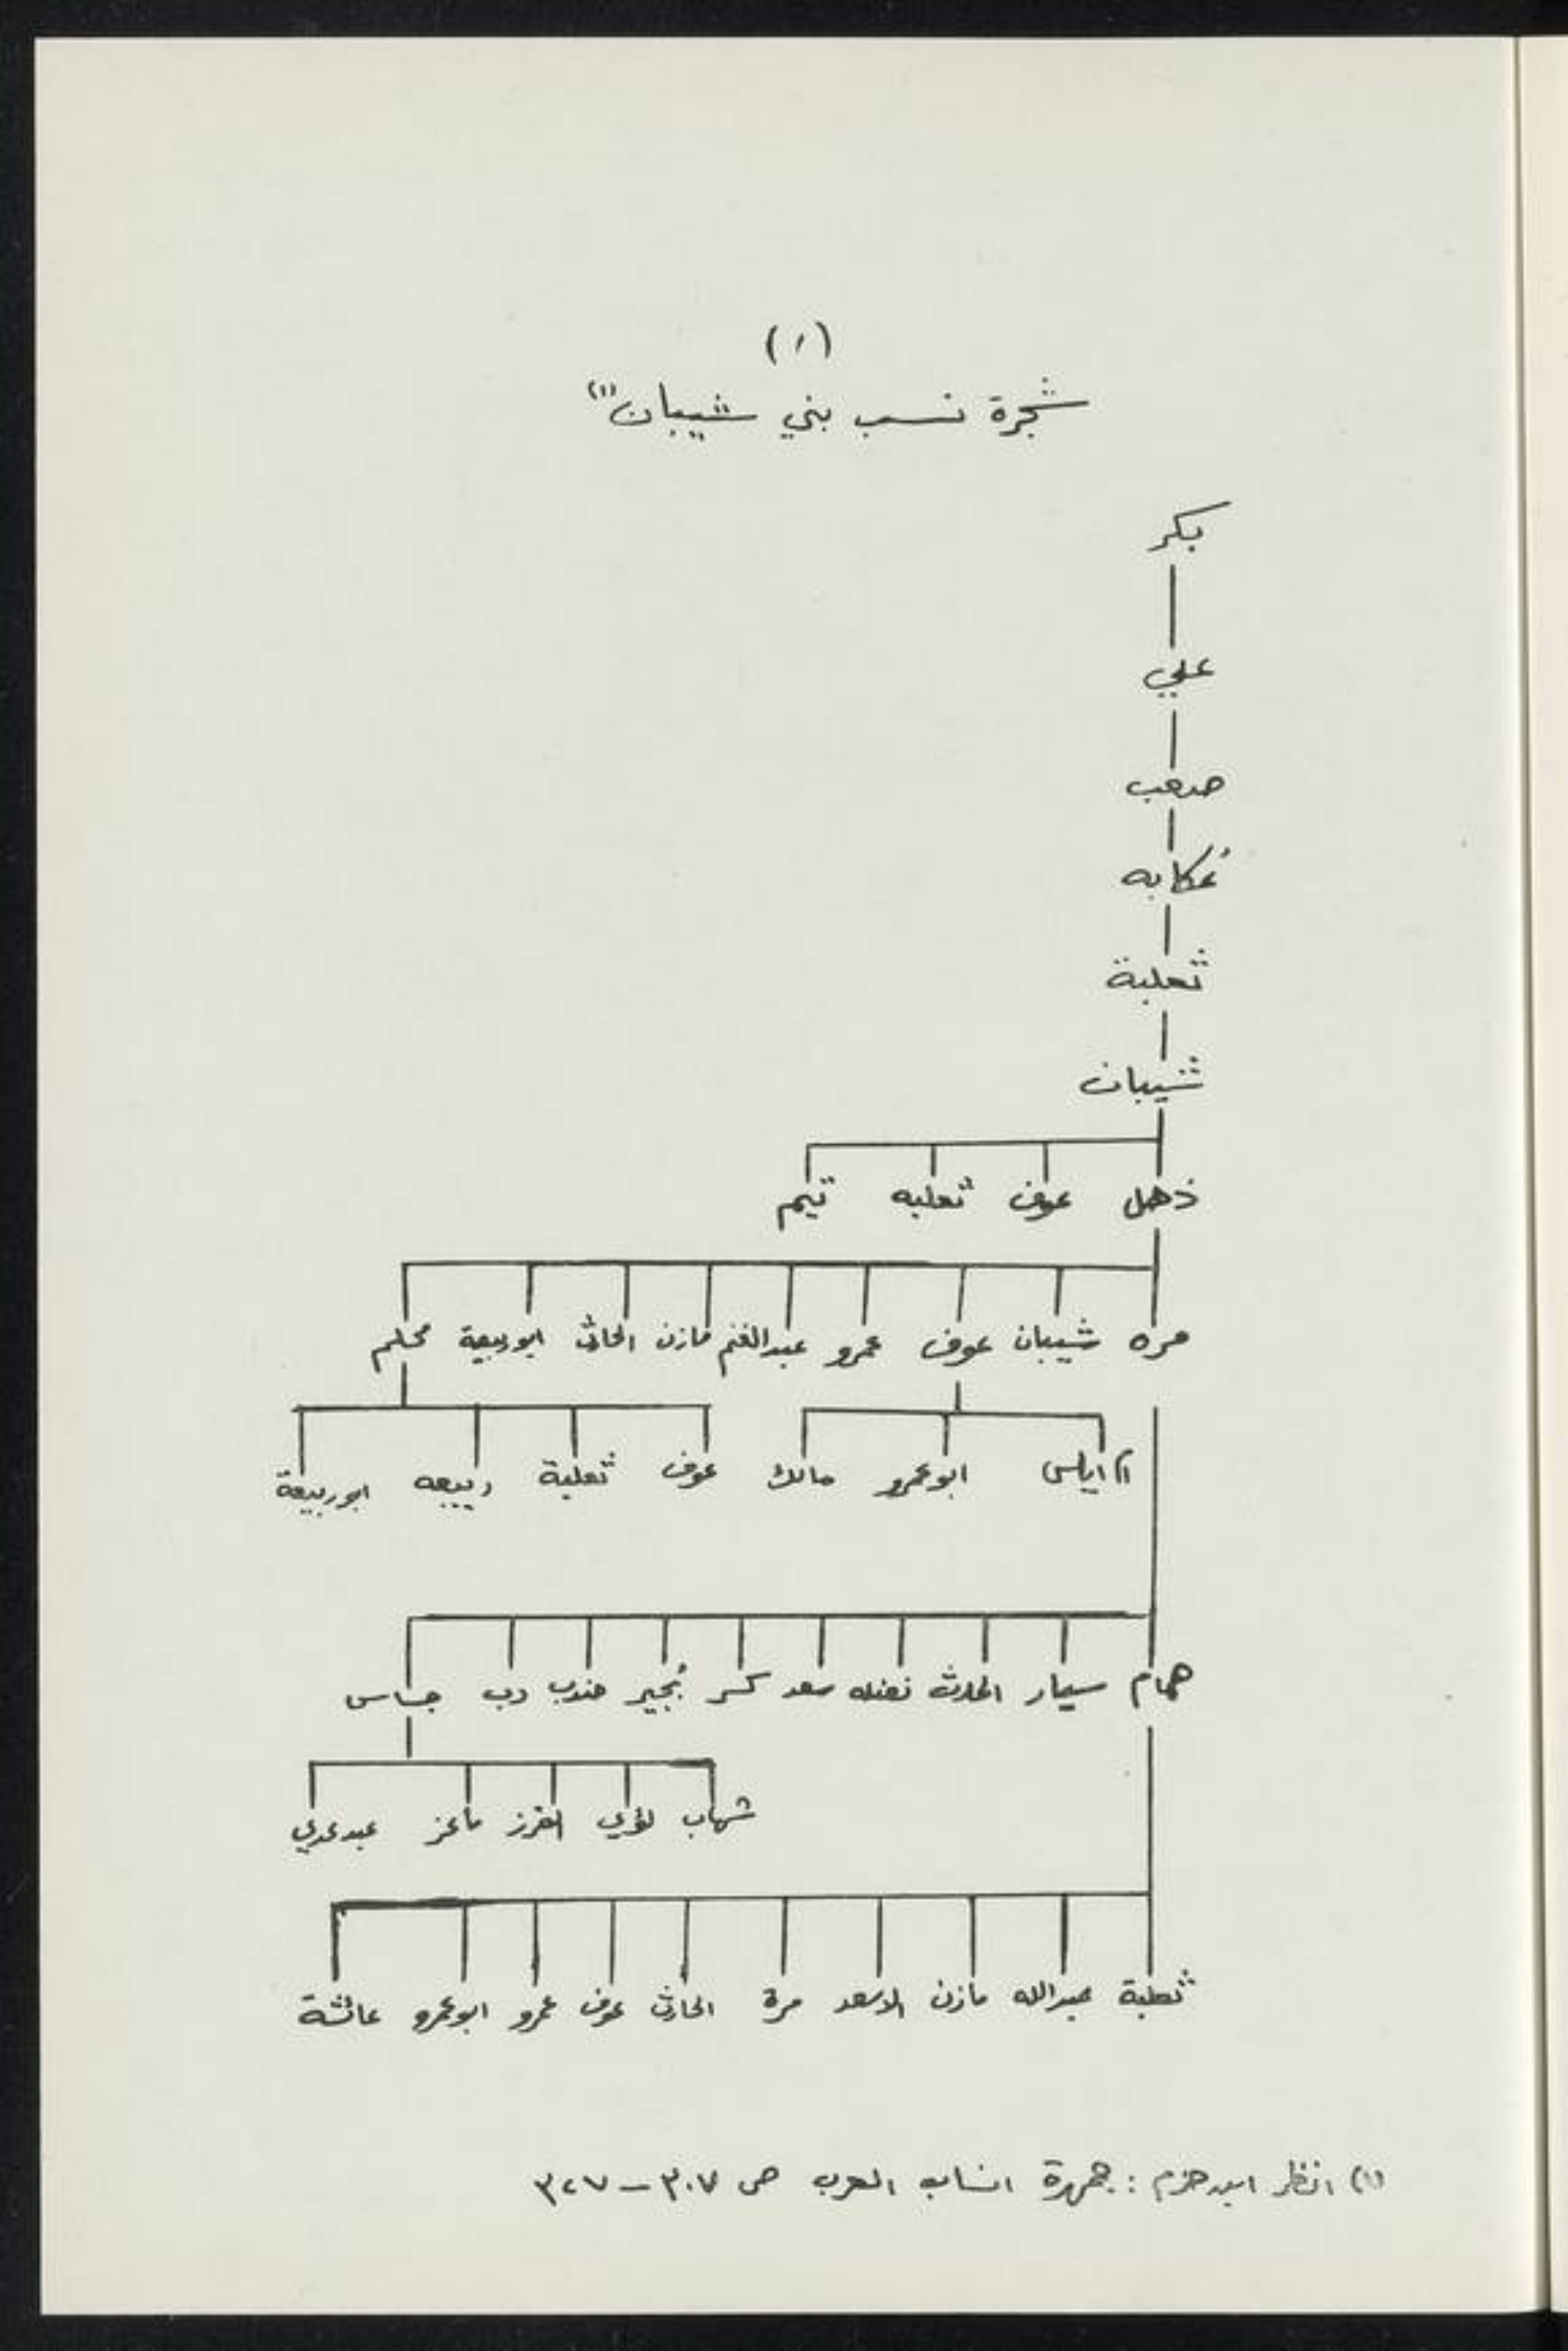 (١)
شجرة نسب بني شيبان (١)
بكر
علي
صعب
عُكابه
ثعلبة
شيبان
ذهل عوف ثعلبه تيم
مره شيبان عوف عمرو عبدالغنم مازن الحارث ابوربيعة محلم
ابوعمرو مالك عوف ثعلبة ربيعه ابوربيعة
همام سيار الحارث نضله سعد كسر بُجير جندب دب جساس
شهاب لؤي ماعز عبدعدي
ثعلبة عبدالله مازن الاسعد مرة الحارث عوف عمرو ابوعمرو عائشة
(١) انظر ابن حزم : جمهرة انساب العرب ص ٣٠٧ – ٣٢٧